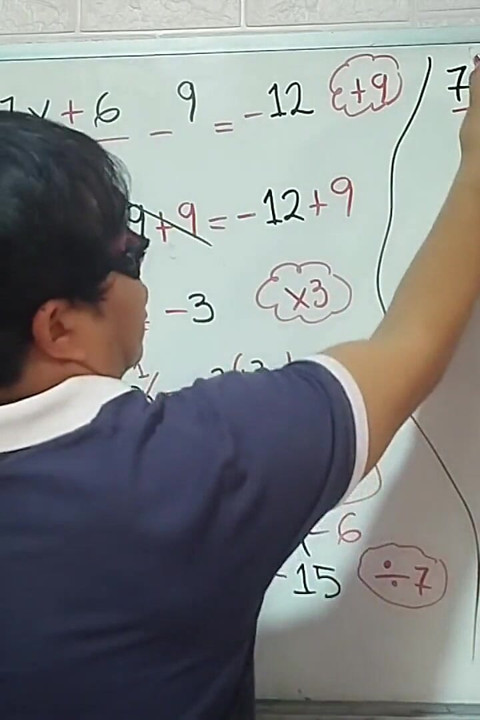 7x + 6 - 9 = -12 +9
9 + 9 = -12 + 9
= -3 ×3
- 6
-15 ÷7
7